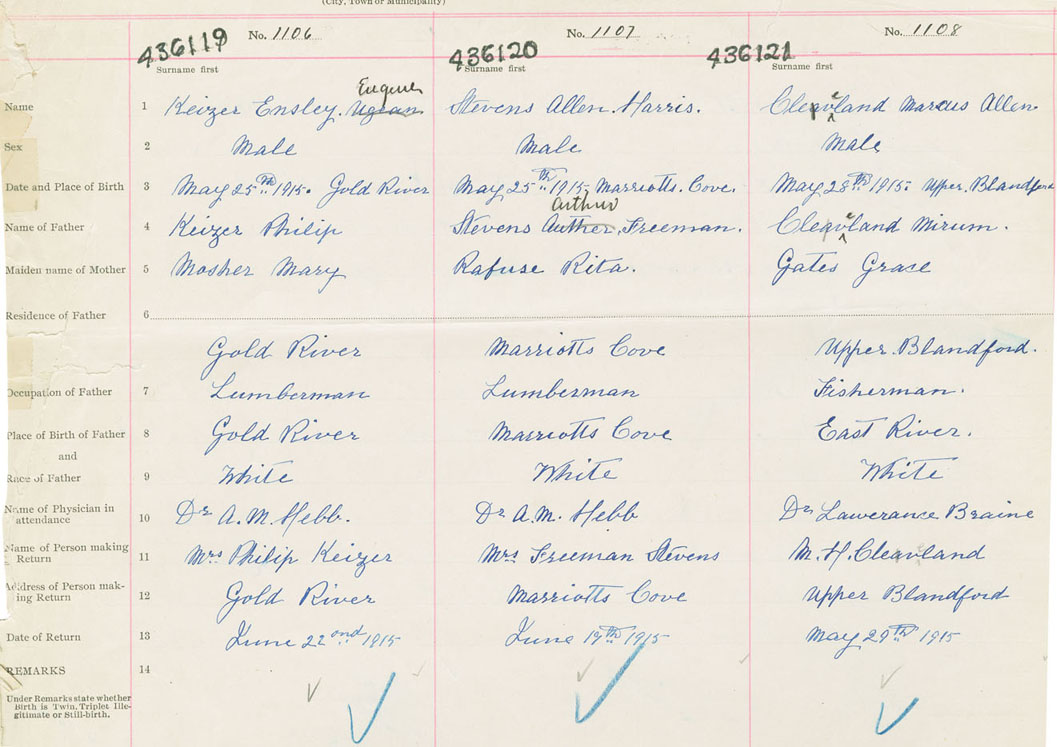 (City, Town or Municipality)
No. 1106 No. 1107 No. 1108
436119 436120 436121
Surname first Surname first Surname first
Eugene
Name 1 Keizer Ensley. Ugean Stevens Allen. Harris. Cleaveland Marcus Allen
Sex 2 Male Male Male
Date and Place of Birth 3 May 25th 1915. Gold River May 25th 1915, Marriotts. Cove. May 28th 1915. Upper. Blandford
Arthur
Name of Father 4 Keizer Philip Stevens Auther, Freeman. Cleaveland Mirum.
Maiden name of Mother 5 Mosher Mary Rafuse Rita. Gates Grace
Residence of Father 6
Gold River Marriotts Cove Upper. Blandford.
Occupation of Father 7 Lumberman Lumberman Fisherman.
Place of Birth of Father 8 Gold River Marriotts Cove East River.
and
Race of Father 9 White White White
Name of Physician in
attendance 10 Dr A. M. Hebb. Dr A. M. Hebb Dr Lawerance Braine
Name of Person making
Return 11 Mrs Philip Keizer Mrs Freeman Stevens M. H. Cleavland
Address of Person mak-
ing Return 12 Gold River Marriotts Cove Upper Blandford
Date of Return 13 June 22ond 1915 June 19th 1915 May 29th 1915
REMARKS 14
Under Remarks state whether
Birth is Twin, Triplet, Ille-
gitimate or Still-birth.